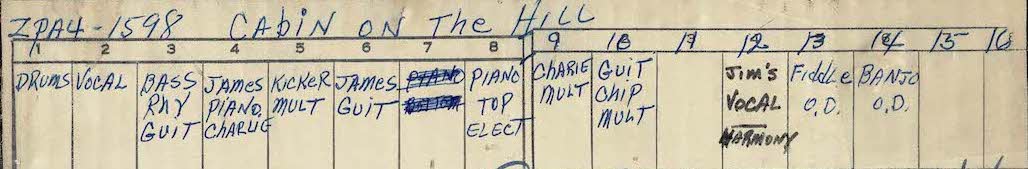 ZPA4-1598 CABIN ON THE HILL
1 2 3 4 5 6 7 8 9 10 11 12 13 14 15 16
DRUMS VOCAL BASS RHY GUIT JAMES PIANO, CHARLIE KICKER MULT JAMES GUIT PIANO BOTTOM PIANO TOP ELECT CHARIE MULT GUIT CHIP MULT Jim's VOCAL HARMONY FiddLe O.D. BANJO O.D.